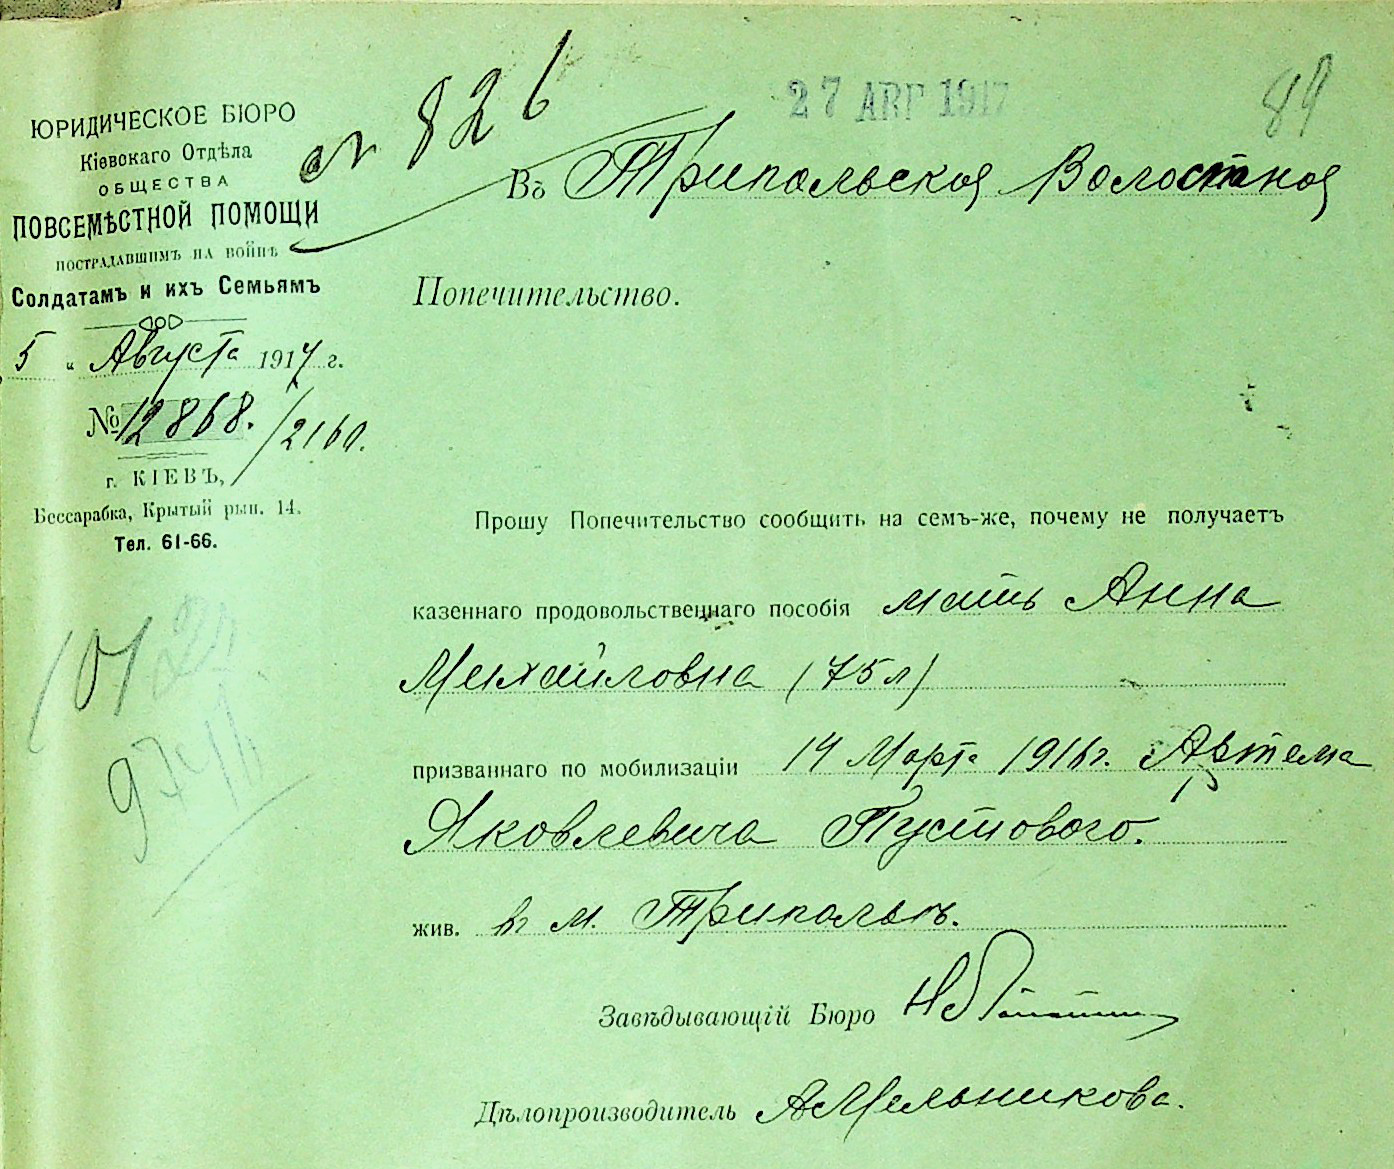 27 АВГ 1917
89
№ 826
ЮРИДИЧЕСКОЕ БЮРО
Кіевскаго Отдѣла
ОБЩЕСТВА
ПОВСЕМѢСТНОЙ ПОМОЩИ
ПОСТРАДАВШИМЪ НА ВОЙНѢ
Солдатамъ и ихъ Семьямъ
5 " Августа 1917 г.
№ 12868. / 2160.
г. КІЕВЪ,
Бессарабка, Крытый рын. 14.
Тел. 61-66.
101
Въ Трипольское Волостное
Попечительство.
Прошу Попечительство сообщить на семъ-же, почему не получаетъ
казеннаго продовольственнаго пособія мать Анна
Михайловна (75 л)
призваннаго по мобилизаціи 14 Марта 1916 г. Артема
Яковлевича Пустового.
жив. въ м. Триполье.
Завѣдывающій Бюро
Дѣлопроизводитель АМельникова.